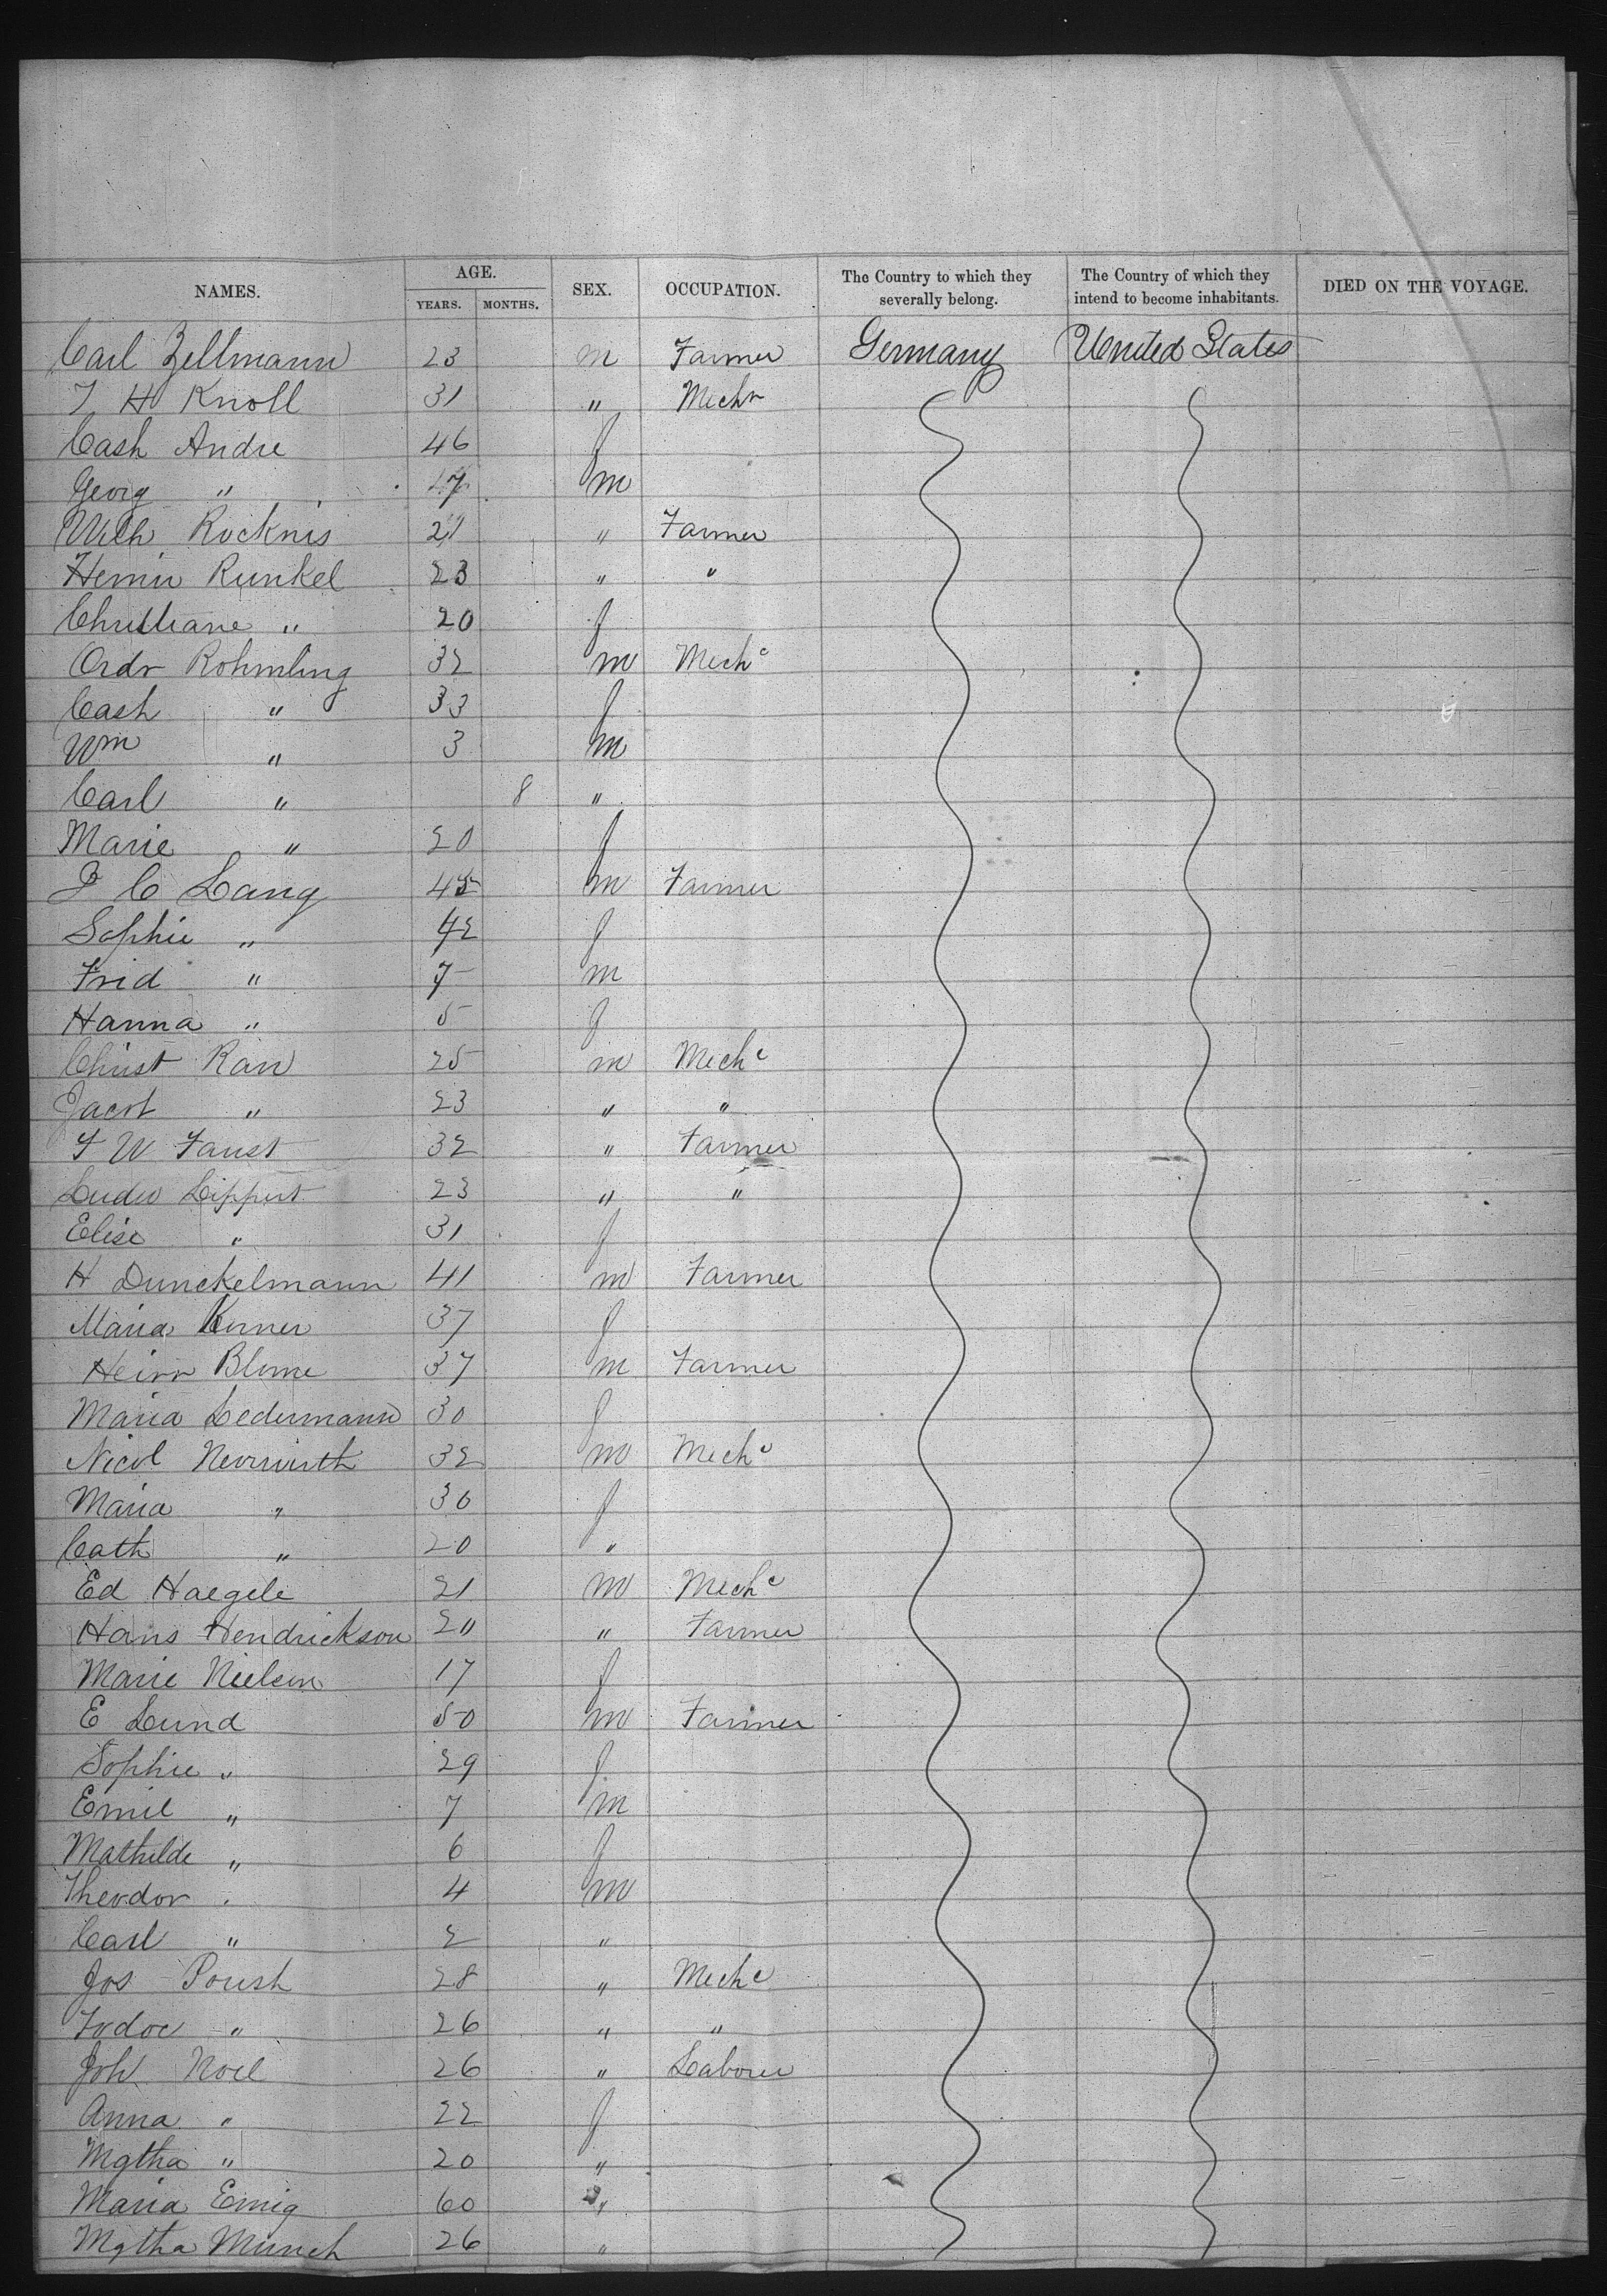 NAMES. AGE. YEARS. MONTHS. SEX. OCCUPATION. The Country to which they severally belong. The Country of which they intend to become inhabitants. DIED ON THE VOYAGE.
Carl Zellmann 23 m Farmer Germany United States
T H Knoll 31 " Mechn
Cash Andre 46 f
Georg " m
Wilh Rocknis 21 " Farmer
Hemin Runkel 23 " "
Christiane " 20 f
Ordr Rohmling 32 m Mechc
Cash " 33 f
Wm " 3 m
Carl " 8 "
Marie " 20 f
J C Lang 45 m Farmer
Sophie " 42 f
Frid " 7 m
Hanna " 5 f
Christ Rau 25 m Mechc
Jacob " 23 " "
F W Faust 32 " Farmer
Ludw Lippert 23 " "
Elise " 31 f
H Dunckelmann 41 m Farmer
Maria Kerner 37 f
Heinr Blume 37 m Farmer
Maria Ledermann 30 f
Nicol 32 m Mechc
Maria " 30 f
Cath " 20 "
Ed Haegele 21 m Mechc
Hans Hendrickson 20 " Farmer
Marie Nielsen 17 f
E Lund 50 m Farmer
Sophie " 29 f
Emil " 7 m
Mathilde " 6 f
Theodor " 4 m
Carl " 2 "
Jos Porsch 28 " Mechc
" 26 " "
Joh Noll 26 " Labourer
Anna " 22 f
Mgtha " 20 "
Maria Emig 60 "
Mgtha Münch 26 "